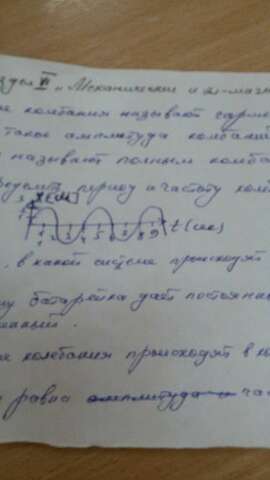 здел VI "Механические и эл-магн
ые колебания называют гармо
такое амплитуда колебани
называют полным колеба
ределить период и частоту колеб
x(см)
t(сек)
, в какой системе происходят
му батарейка даёт постоянн
ые колебания происходят в ко
равна амплитуда час